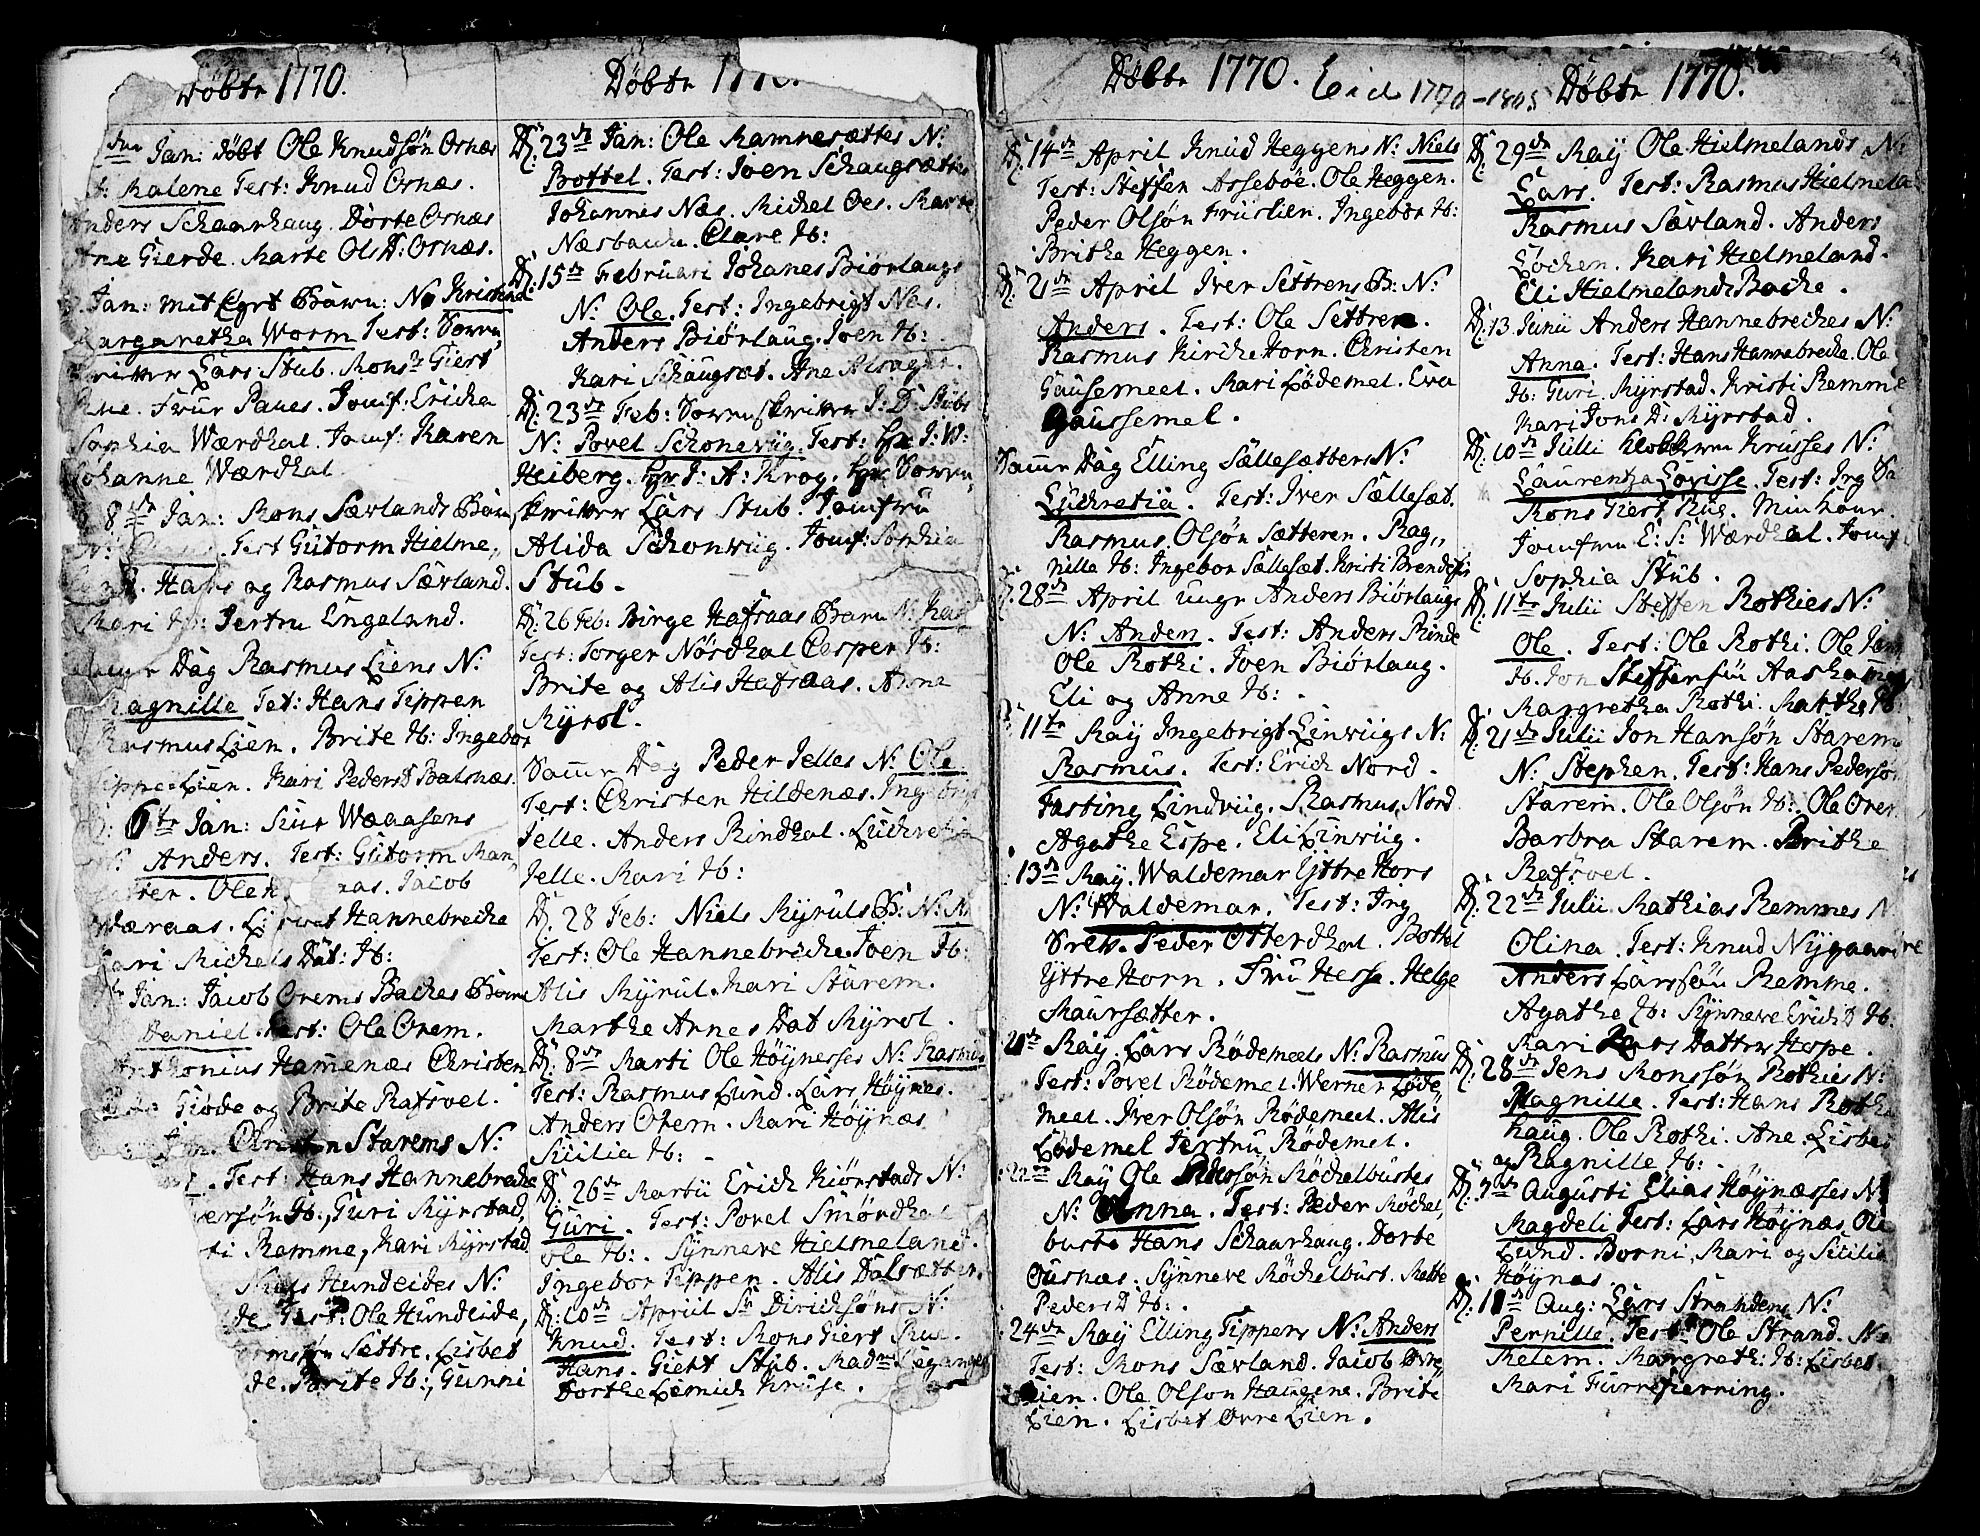 Døbte 1770.
den Jan: døbt Ole Knudsøn Ornæs
Malene Test: Knud Ornæs.
Anders Schaarhaug. Dorte Ornæs
Ane Gierde. Marte Ols D: Ornæs.
Jan: mit eget Barn: N: Kristina
Margaretha Worm Test: Soren
skriver Lars Stub. Mons: Giert
Frur Panes. Jomf: Ericha
Sophia Wærdhal. Jomf: Karen
Johanne Wærdhal
8de Jan: Mons Sævlands Barn
N: Test Gutorm Hielme,,
land. Hans og Rasmus Sævland.
Mari ib: Jertru Engeland.
Samme Dag Rasmus Liens N:
Ragnille Tet: Hans Tippen
Rasmus Lien. Brite ib: Ingebor
Tippe Lien. Kari Peders D Balsnæs.
6te Jan: Siur Wæaasens
N: Anders. Test: Gutorm Man
Jacob
Wæraas. Lisbet Hannebreche
Kari Michels Dat: ib:
Jan: Jacob Orems Baches Barn
Daniel. Test: Ole Orem.
Anthonius Hamenæs Christen
Giøde og Brite Rafsvel.
Jan. Christen Starems N:
Test: Hans Hannebreche
ersøn ib: Guri Myrstad,
ti Remme, Kari Myrstad
Niels Hundeides N:
Test: Ole Hundeide,
ormssøn Sættre. Lisbet
de. Brite ib: Gunni
Døbte 1770.
D: 23de Jan: Ole Ramnesættes N:
Bottel. Test: Joen Schaugsætte
Johannes Næs. Michel Oes. Marte
Næsbache. Clare ib:
D: 15de Februari Johanes Biørlaugs
N: Ole. Test: Ingebrigt Næs.
Anders Biørlaug. Joen ib:
Kari Schaugsæt. Ane Alsager.
D: 23de Feb: Sorenskriver J: D: Stubs
N: Povel Schonevüg. Test: Hr J: W:
Heiberg. Hr J: A: Krog. Hr Soren,,
skriver Lars Stub. Jomfru
Alida Schonwüg. Jomf: Sophia
Stub.
D: 26 Feb: Birge Hafsaas Barn N: Kari
Test: Torger Nørdhal Casper ib:
Brite og Alis Hafsaas. Anne
Myrol.
Samme Dag Peder Jelles N: Ole
Test: Christen Hildenæs. Ingebrigt
Jelle. Anders Rindhal. Luchretia
Jelle. Mari ib:
D: 28 Feb: Niels Myruls B: N:
Test: Ole Hannebreche. Joen ib:
Alis Myrul. Kari Starem.
Marthe Arnes Dat Myrol.
D: 8de Marti Ole Høynesses N: Rasmus
Test: Rasmus Lund. Lars Høynes.
Anders Orem. Mari Høynæs
Sicilia ib:
D: 26de Martii Erich Kiørstads N:
Guri. Test: Povel Smørdhal
ole ib: Synneve Hielmeland.
Ingebor Tippen. Alis Dalsætter.
D: 10de April Sr Dirichsøns N:
Knud. Test: Mons Giert Rue.
Hans. Giert Stub. Madme Leganger
Dorthe Lemich Kruse.
Døbte 1770. Eid 1770-1805
D: 14de April Knud Heggens N: Niels
Test: Steffen Assebøe. Ole Heggen.
Peder Olsøn Frislien. Ingebor ib:
Brithe Heggen.
D: 21de April Iver Settrens B: N:
Anders. Test: Ole Settren.
Rasmus Kirchehorn. Christen
Gausemeel. Mari Lødemel. Eva
Gaussemel.
Samme Dag Elling Sællesætters N:
Luchretia. Test: Iver Sællesæt.
Rasmus Olsøn Sætteren. Rag,,
nille ib: Ingebor Sællesæt. Kristi Brendefür
28de April ungr Anders Biørlaugs
N: Anders. Test: Anders Rinde
Ole Rothi. Joen Biørlaug.
Eli og Anne ib:
11te May Ingebrigt Linwiigs N:
Rasmus. Test: Erich Nord.
Fasting Lindviig. Rasmus Nord
Agathe Espe. Eli Linwiig.
13de May. Waldemar Yttrehors
N: Waldemar. Test: Jrg
Sreh. Peder Otterdhal. Bottel
Yttrehorn. Fru Hesse. Helge
Maursætter.
20de May Lars Rødemeels N: Rasmus
Test: Povel Rødemel. Werner Løde
meel. Iver Olsøn Rødemeel. Alis
Lødemel Jertru Rødemel.
22de May Ole Pedersøn Røchelbustes
N: Anna. Test: Peder Røchel,
buste Hans Schaarhaug. Dorte
Ousnæs. Synneve Røchelbust. Mette
Peders D ib:
24de May Elling Tippers N: Anders
Test: Mons Sævland. Jacob Øvre
Lien. Ole Olson Haugene. Brite
Lien. Lisbet Øvre Lien.
Døbte 1770.
D: 29de May Ole Hielmelands N:
Lars. Test: Rasmus Hielmela
Rasmus Sævland. Anders
Løchen. Kari Hielmeland.
Eli Hielmelands Bache.
D: 13 Junii Anders Hannebreches N:
Anna. Test: Hans Hannebreche. Ole
ib: Guri Myrstad. Kristi Remme
Kari Jons D: Myrstad.
D: 10de Julii Klokkeren Krusses N:
Laurentza Lovisse. Test: Jrg Sr
Mons Giert Rug. Min hour.
Jomfru E: S: Wærdhal. Jomf:
Sophia Stub.
D: 11te Julii Steffen Rothies N:
Ole. Test: Ole Rothi. Ole
ib. Jon Steffensøn Aashammer
Margretha Rothi. Marthe ib:
D: 21de Julii Jon Hansøn Starems
N: Stephen. Test: Hans Pedersøn
Starem. Ole Olsøn ib: Ole Orem
Barbra Starem. Brithe
Rafsvel.
D: 22de Julii Mathias Remmes N
Olina. Test: Knud Nygaard
Anders Larssøn Remme.
Agathe ib: Synneve Erichs D ib:
Mari Datter Hope.
D: 28de Jens Monssøn Rothies N:
Magnille. Test: Hans Rothe
haug. Ole Rothi. Ane. Lisbet
og Ragnille ib:
D: 7de Augusti Elias Høynæsses N:
Magdeli Test: Lars Høynæs. Ole
Lund. Borni, Mari og Sicilia
Høynæs.
D: 11de Aug: Lars Strandens N:
Pernille. Test: Ole Strand. N
Melem. Margreth: ib: Lisbet.
Mari Furrefierning.